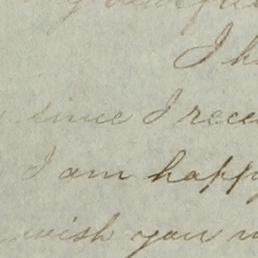 I h
since I rece
I am happy
wish you